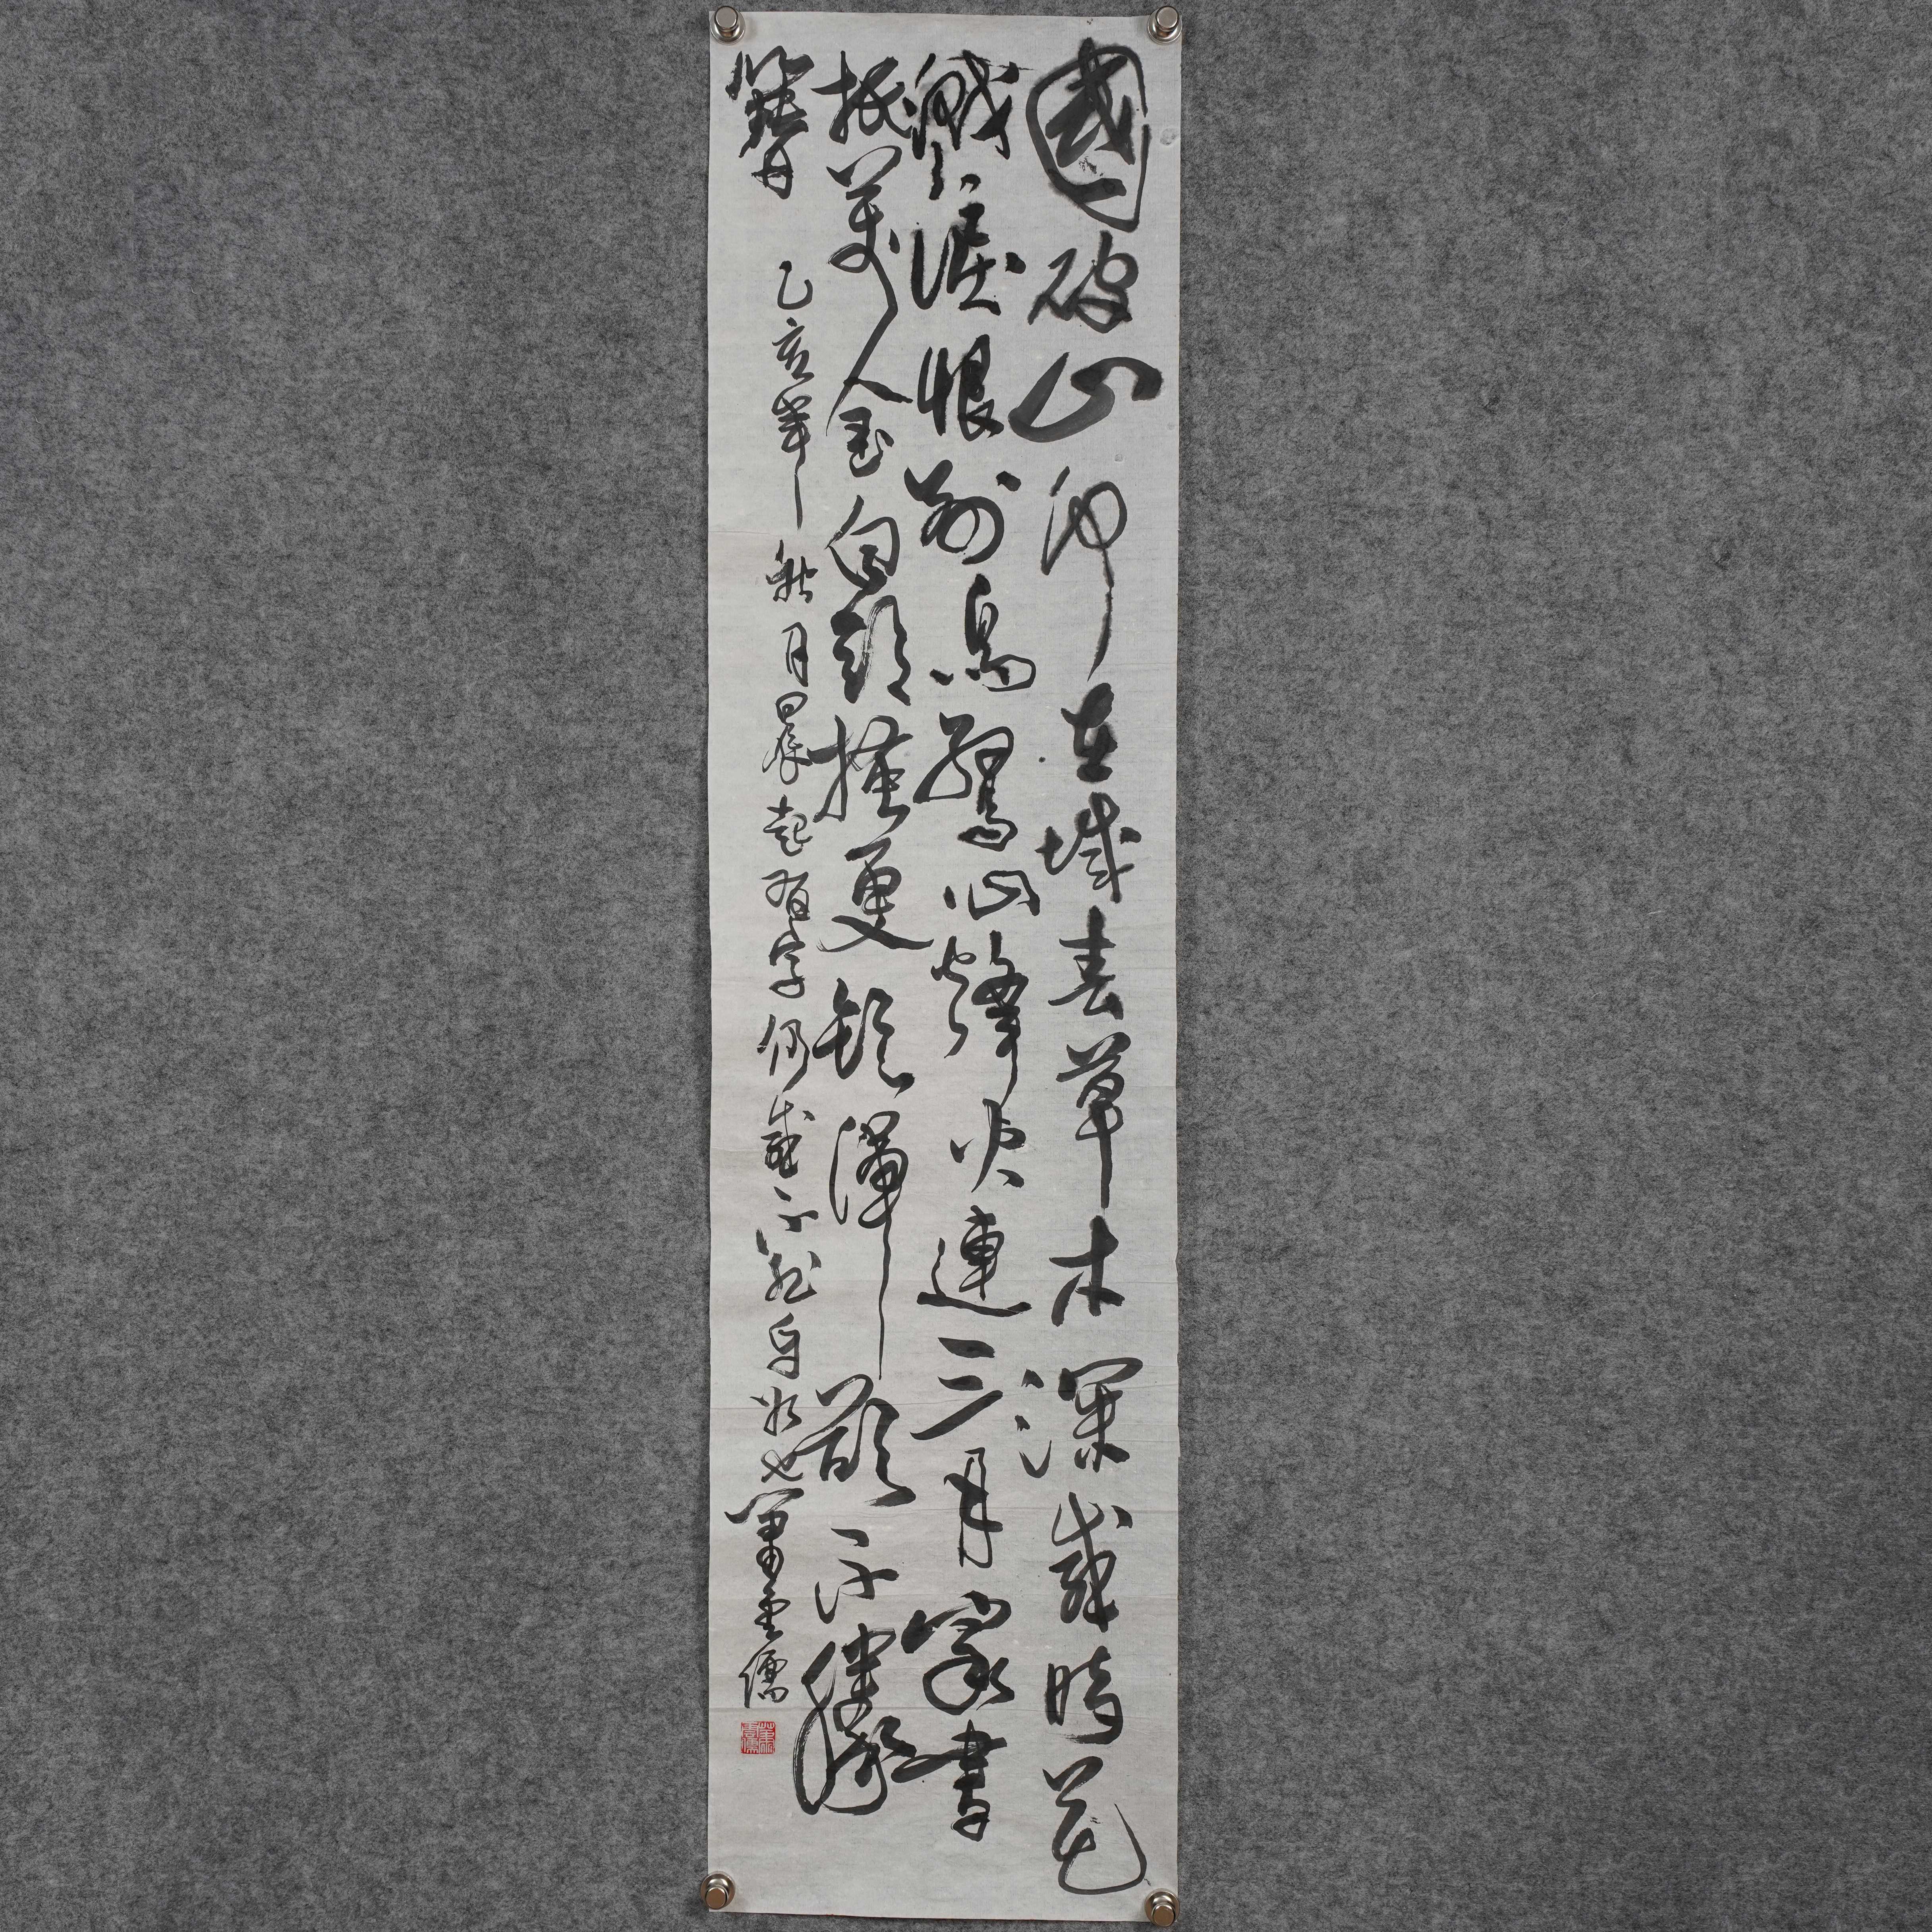 國破山河在城春草木深感時花
濺淚恨別鳥驚心烽火連三月家書
抵萬金白頭搔更短渾欲不勝
簪 乙亥年秋月晨起有字仍感不能自也 蕭雲儒
蕭雲儒